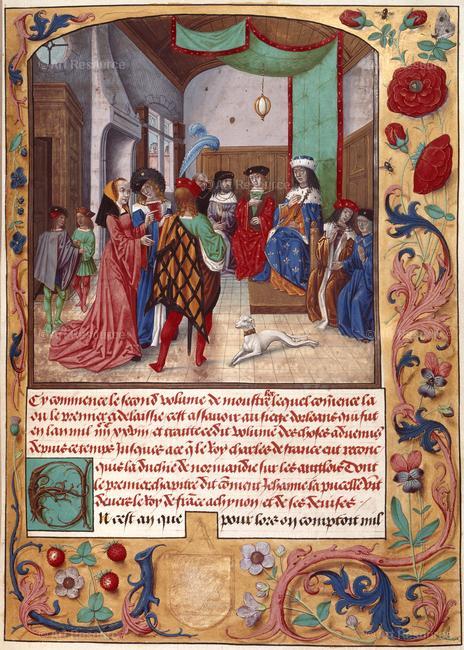 Cy commence le second volume de monstrelet lequel cōmence la
ou le premier a delaisse cest assavoir au siege dorleans qui fut
en lan mil iiijc xxviij et traitte ce dit volume des choses advenues
depuis ce temps jusques a ce q̄ le roy charles de france eut recon
quis la duchie de normandie sur les anglois Dont
le premier chapitre dit cōment Jehanne la pucelle vit
devers le roy de frāce a chynon et de ses devises
En cest an que pour lors on comptoit mil